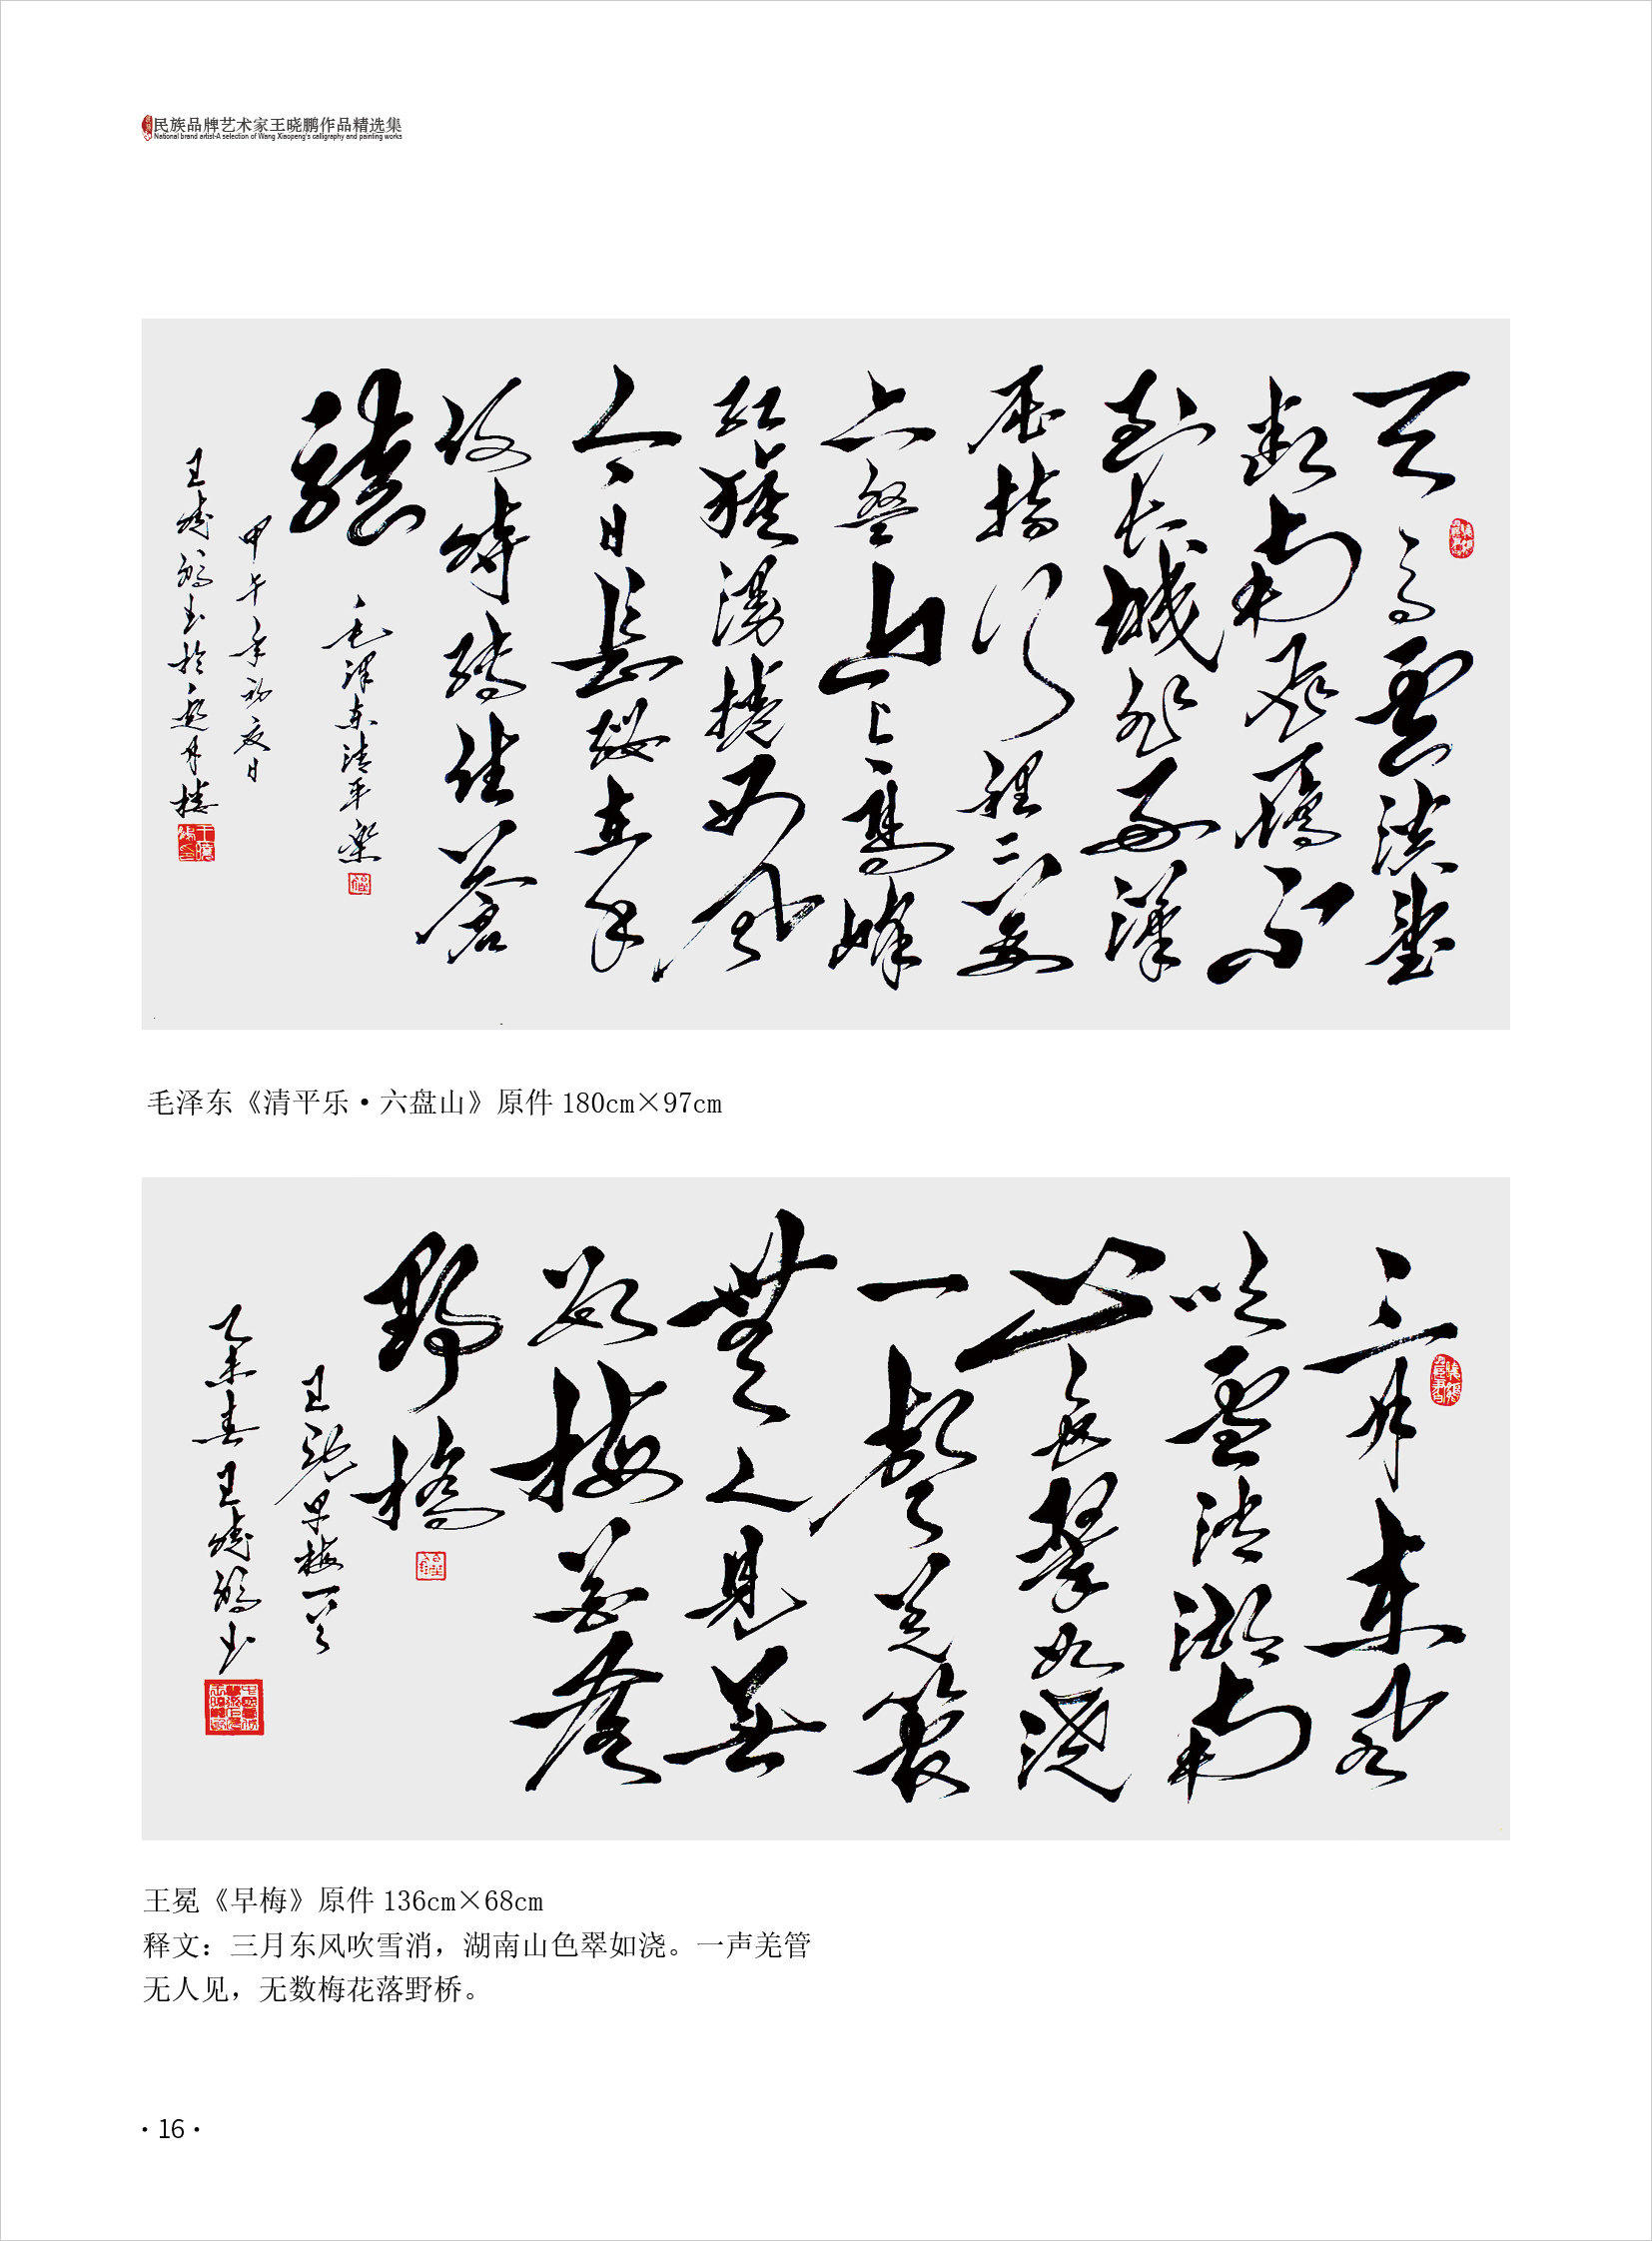 民族品牌艺术家王晓鹏作品精选集
National brand artist-A selection of Wang Xiaopeng's calligraphy and painting works
天高雲淡望
斷南飛雁不
到長城非好漢
屈指行程二万
六盤山上高峰
紅旗漫捲西風
今日長纓在手
何時縛住蒼
龍
毛澤東清平樂
甲午年初夏日
王曉鵬書於月樓
毛泽东《清平乐·六盘山》原件 180cm×97cm
三月東風
吹雪消湖南
山色翠如澆
一聲羌管
無人見無
數梅花落
野橋
王冕早梅一首
乙未春王曉鵬書
王冕《早梅》原件 136cm×68cm
释文：三月东风吹雪消，湖南山色翠如浇。一声羌管
无人见，无数梅花落野桥。
· 16 ·